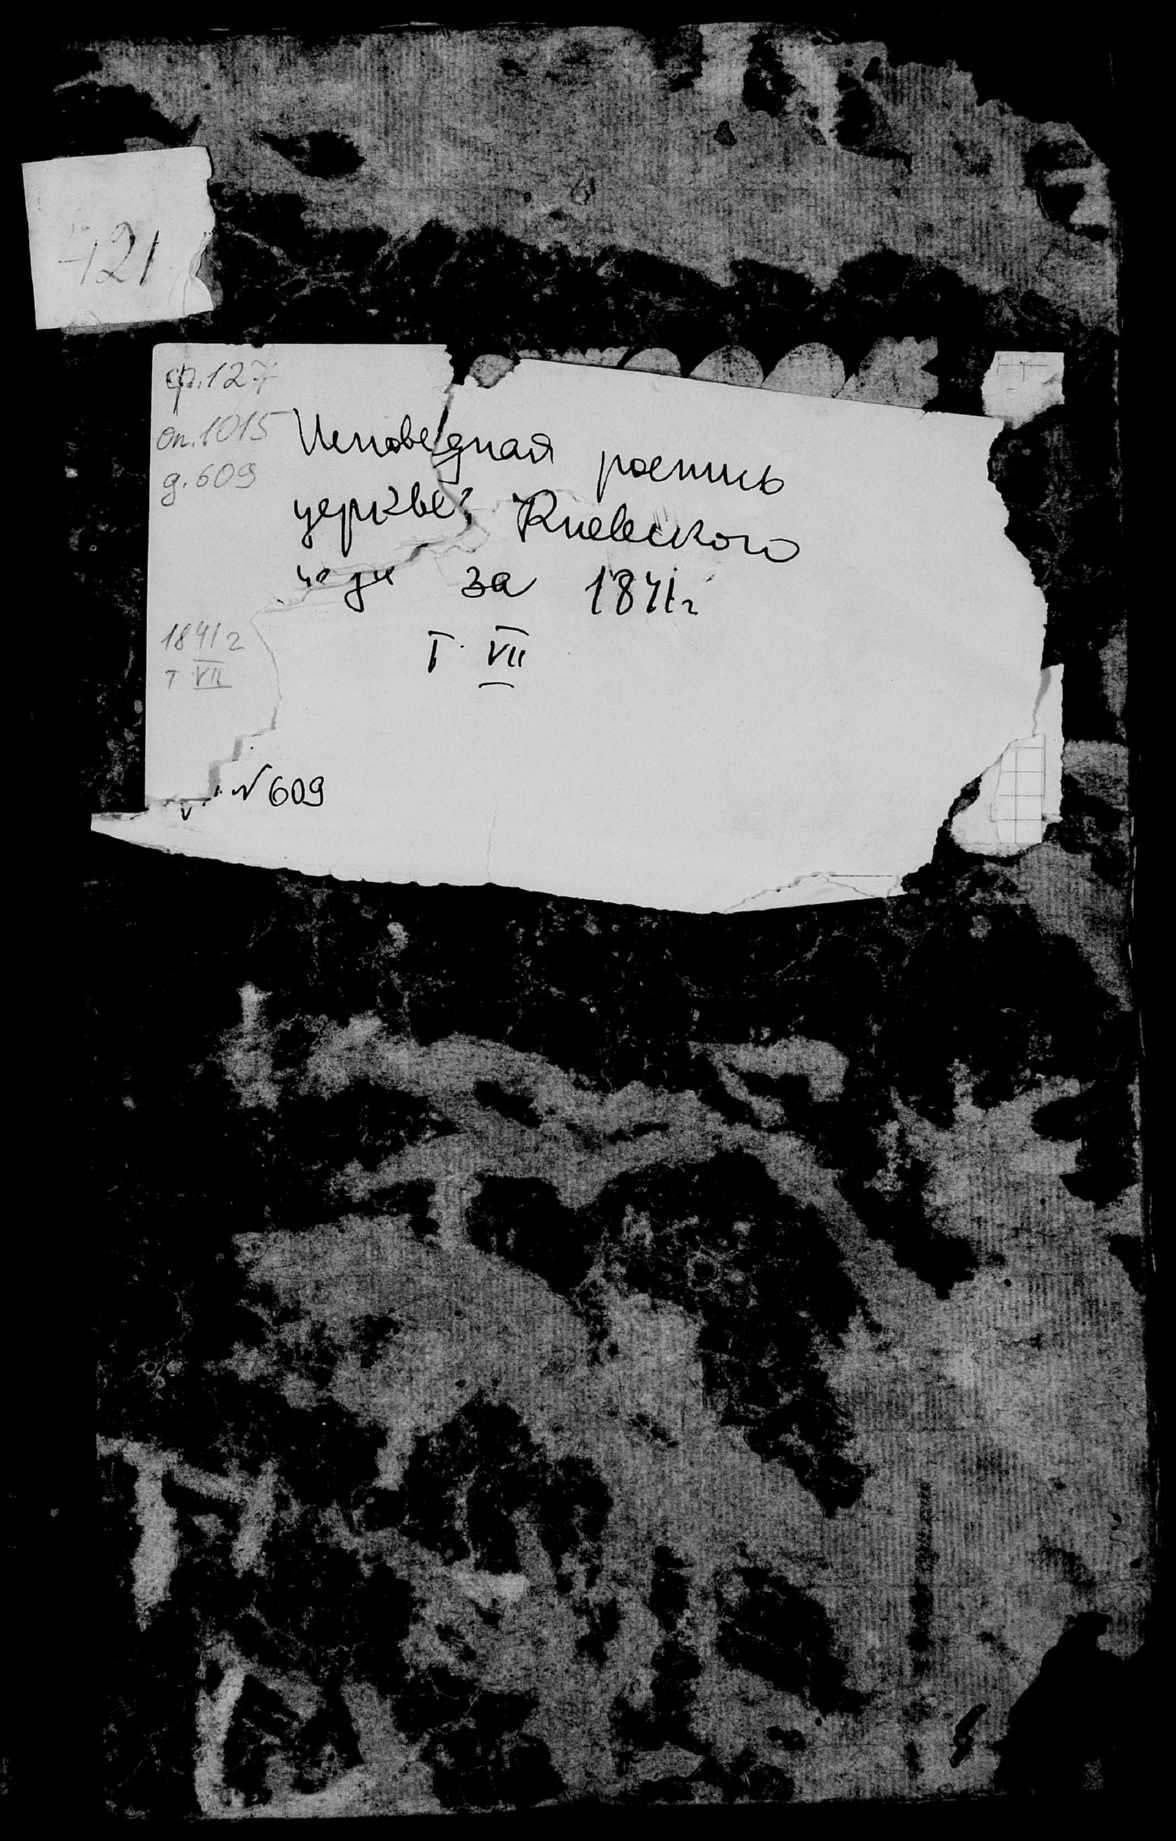 421
ф.127
оп.1015
д.609
Исповедная роспись
церквей Киевского
за 1841г
Т. VII
1841г
Т VII
№609